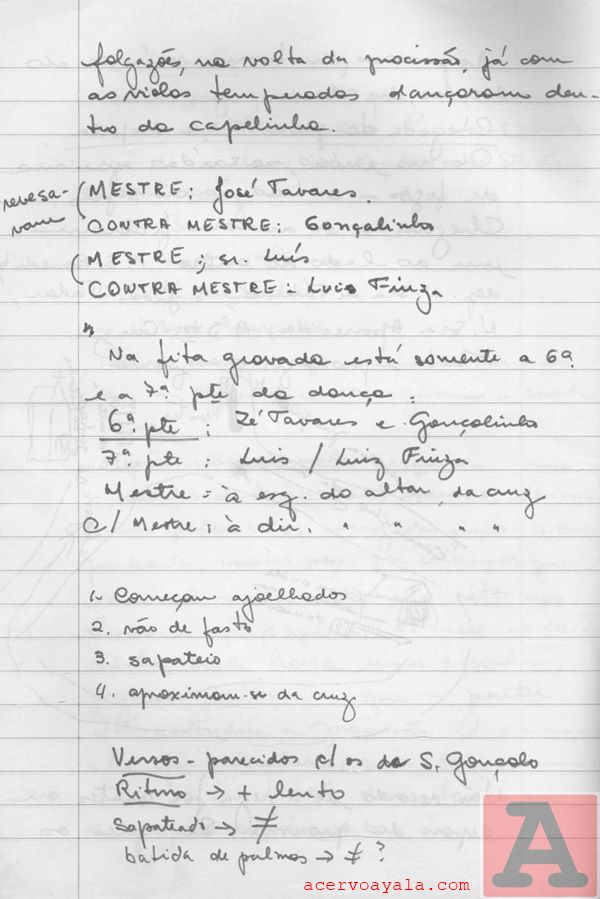 folgazões, na volta da procissão, já com
as violas temperadas dançaram den-
tro da capelinha.
revesa-
vam
MESTRE: José Tavares.
CONTRA MESTRE: Gonçalinho
MESTRE: sr. Luís
CONTRA MESTRE: Luis Fiuza
Na fita gravada está somente a 6ª
e a 7ª pte da dança:
6ª pte: Zé Tavares e Gonçalinho
7ª pte: Luis / Luiz Fiuza
Mestre = à esq. do altar, da cruz
C/ Mestre: à dir. " " " "
1. Começam ajoelhados
2. vão de fasto
3. sapateio
4. aproximam-se da cruz
Versos - parecidos c/ os de S. Gonçalo
Ritmo → + lento
Sapateado → ≠
batida de palmas → ≠ ?
A
acervoayala.com